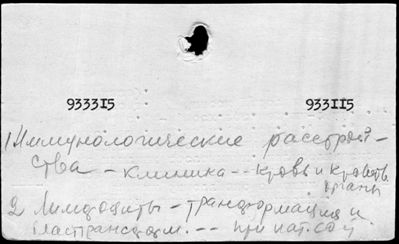 9333I5 933II5
1 Иммунологические расстрой-
ства - клиника -- кровь и кроветв.
органы
2 Лимфоциты - трансформация и
бластрансформ. --- при пат. сост